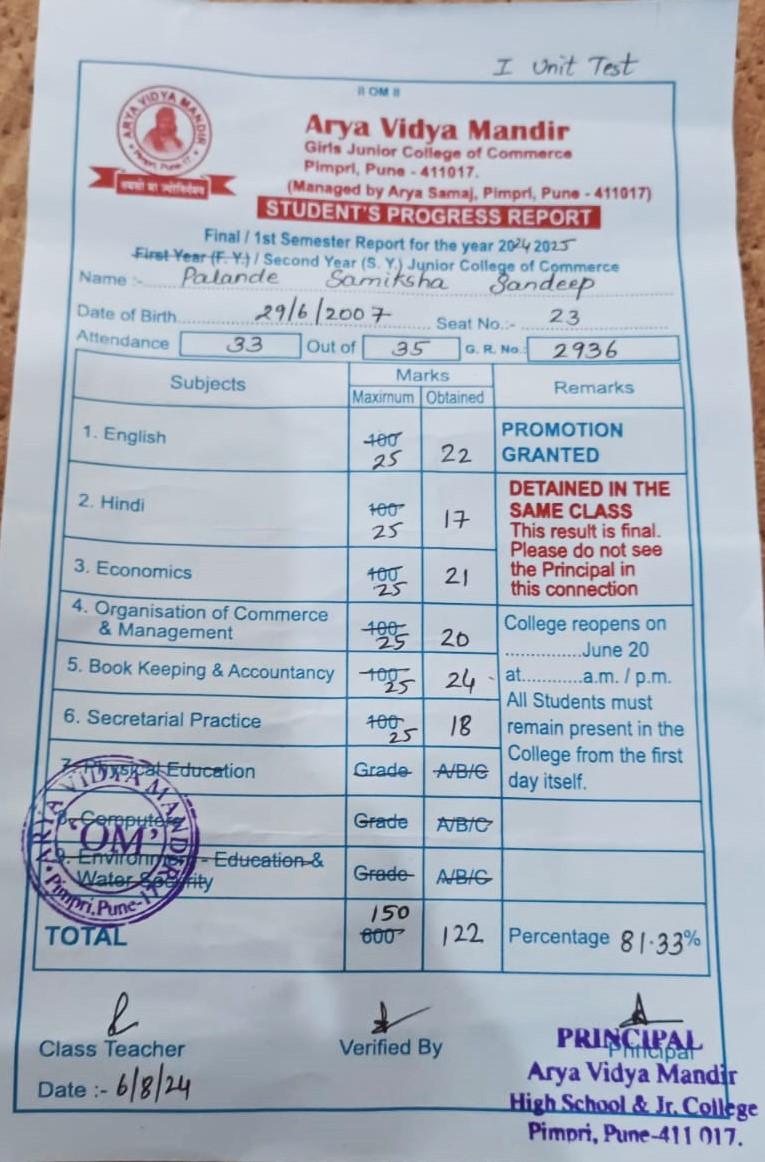 I Unit Test
॥ OM ॥
ARYA VIDYA MANDIR
Pimpri, Pune-17.
तमसो मा ज्योतिर्गमय
Arya Vidya Mandir
Girls Junior College of Commerce
Pimpri, Pune - 411017.
(Managed by Arya Samaj, Pimpri, Pune - 411017)
STUDENT'S PROGRESS REPORT
Final / 1st Semester Report for the year 2024 2025
First Year (F. Y.) / Second Year (S. Y.) Junior College of Commerce
Name :- Palande Samiksha Sandeep
Date of Birth 29/6/2007 Seat No.:- 23
Attendance 33 Out of 35 G. R. No.: 2936
Subjects Marks Remarks
Maximum Obtained
1. English 100 25 22 PROMOTION GRANTED
2. Hindi 100 25 17 DETAINED IN THE SAME CLASS
This result is final.
Please do not see
the Principal in
this connection
3. Economics 100 25 21
4. Organisation of Commerce
& Management 100 25 20
College reopens on
..............June 20
at............a.m. / p.m.
All Students must
remain present in the
College from the first
day itself.
5. Book Keeping & Accountancy 100 25 24
6. Secretarial Practice 100 25 18
7. Physical Education Grade A/B/C
8. Computers Grade A/B/C
9. Environment - Education &
Water Security Grade A/B/C
ARYA VIDYA MANDIR
'OM'
Pimpri, Pune-17
TOTAL 150 600 122 Percentage 81.33%
Class Teacher Verified By Principal
Date :- 6/8/24
PRINCIPAL
Arya Vidya Mandir
High School & Jr. College
Pimpri, Pune-411 017.